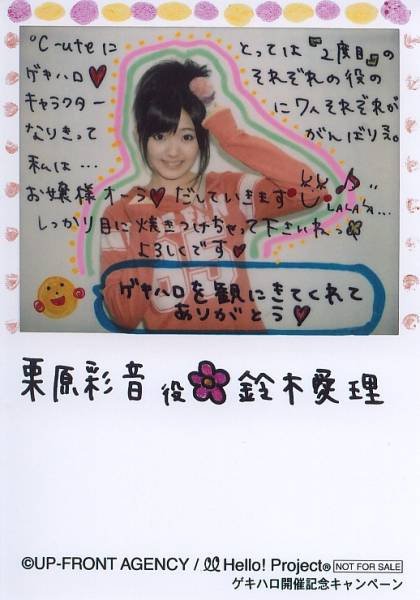 ℃-uteに とっては『2度目』の
ゲキハロ♥ それぞれの役の
キャラクターに7人それぞれが
なりきって がんばりえ。
私は…
お嬢様オーラ♥だしていきます♪
LALALA…
しっかり目に焼きつけちゃって下さいねっ
よろしです♥
ゲキハロを観にきてくれて
ありがとう♥
栗原彩音 役 鈴木愛理
©UP-FRONT AGENCY / Hello! Project® NOT FOR SALE
ゲキハロ開催記念キャンペーン